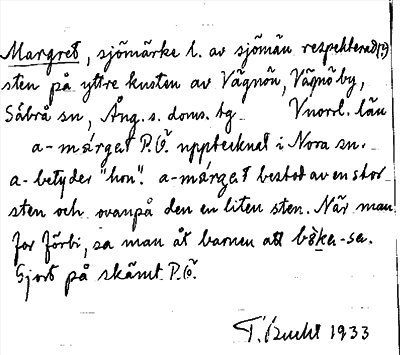 Margret, sjömärke l. av sjömän respekterad(?)
sten på yttre kusten av Vägnön, Vägnö by,
Säbrå sn, Ång. s. doms. tg Vnorrl. län
a-márgat P.Ö. upptecknat i Nora sn.
a- betyder "hon". a-márgat bestod av en stor
sten och ovanpå den en liten sten. När man
for förbi, sa man åt barnen att -se.
Gjort på skämt P.Ö.
T. Bucht 1933